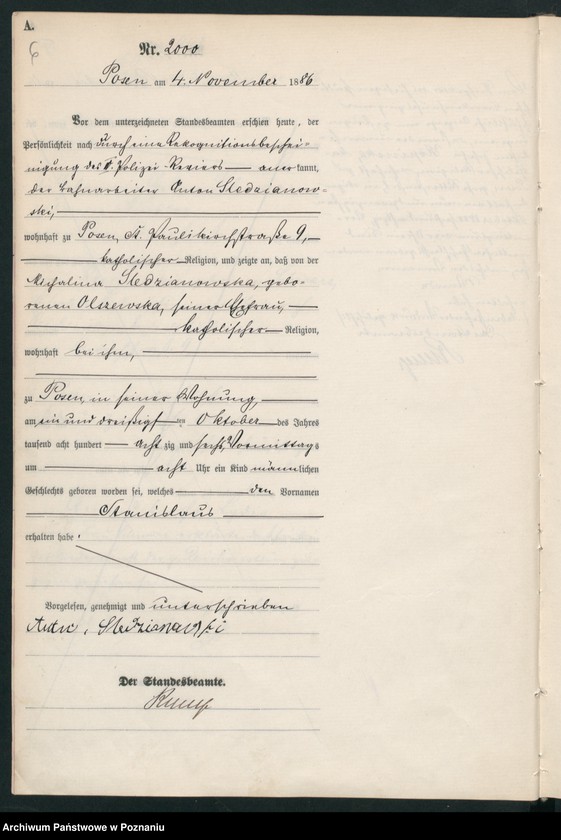 A.
6
Nr. 2000
Posen am 4. November 1886
Vor dem unterzeichneten Standesbeamten erschien heute, der
Persönlichkeit nach durch eine Rekognitionsbeschei-
nigung des Polizei-Reviers anerkannt,
der Bahnarbeiter Anton Sledzianow-
ski,
wohnhaft zu Posen, St. Paulikirchstraße 9,
katholischer Religion, und zeigte an, daß von der
Michalina Sledzianowska, gebo-
renen Olszewska, seiner Ehefrau,
katholischer Religion,
wohnhaft bei ihm,
zu Posen, in seiner Wohnung,
am ein und dreißigsten Oktober des Jahres
tausend acht hundert acht zig und sechs, Vormittags
um acht Uhr ein Kind männlichen
Geschlechts geboren worden sei, welches den Vornamen
Stanislaus
erhalten habe.
Vorgelesen, genehmigt und unterschrieben
Sledzianowski
Der Standesbeamte.
Archiwum Państwowe w Poznaniu